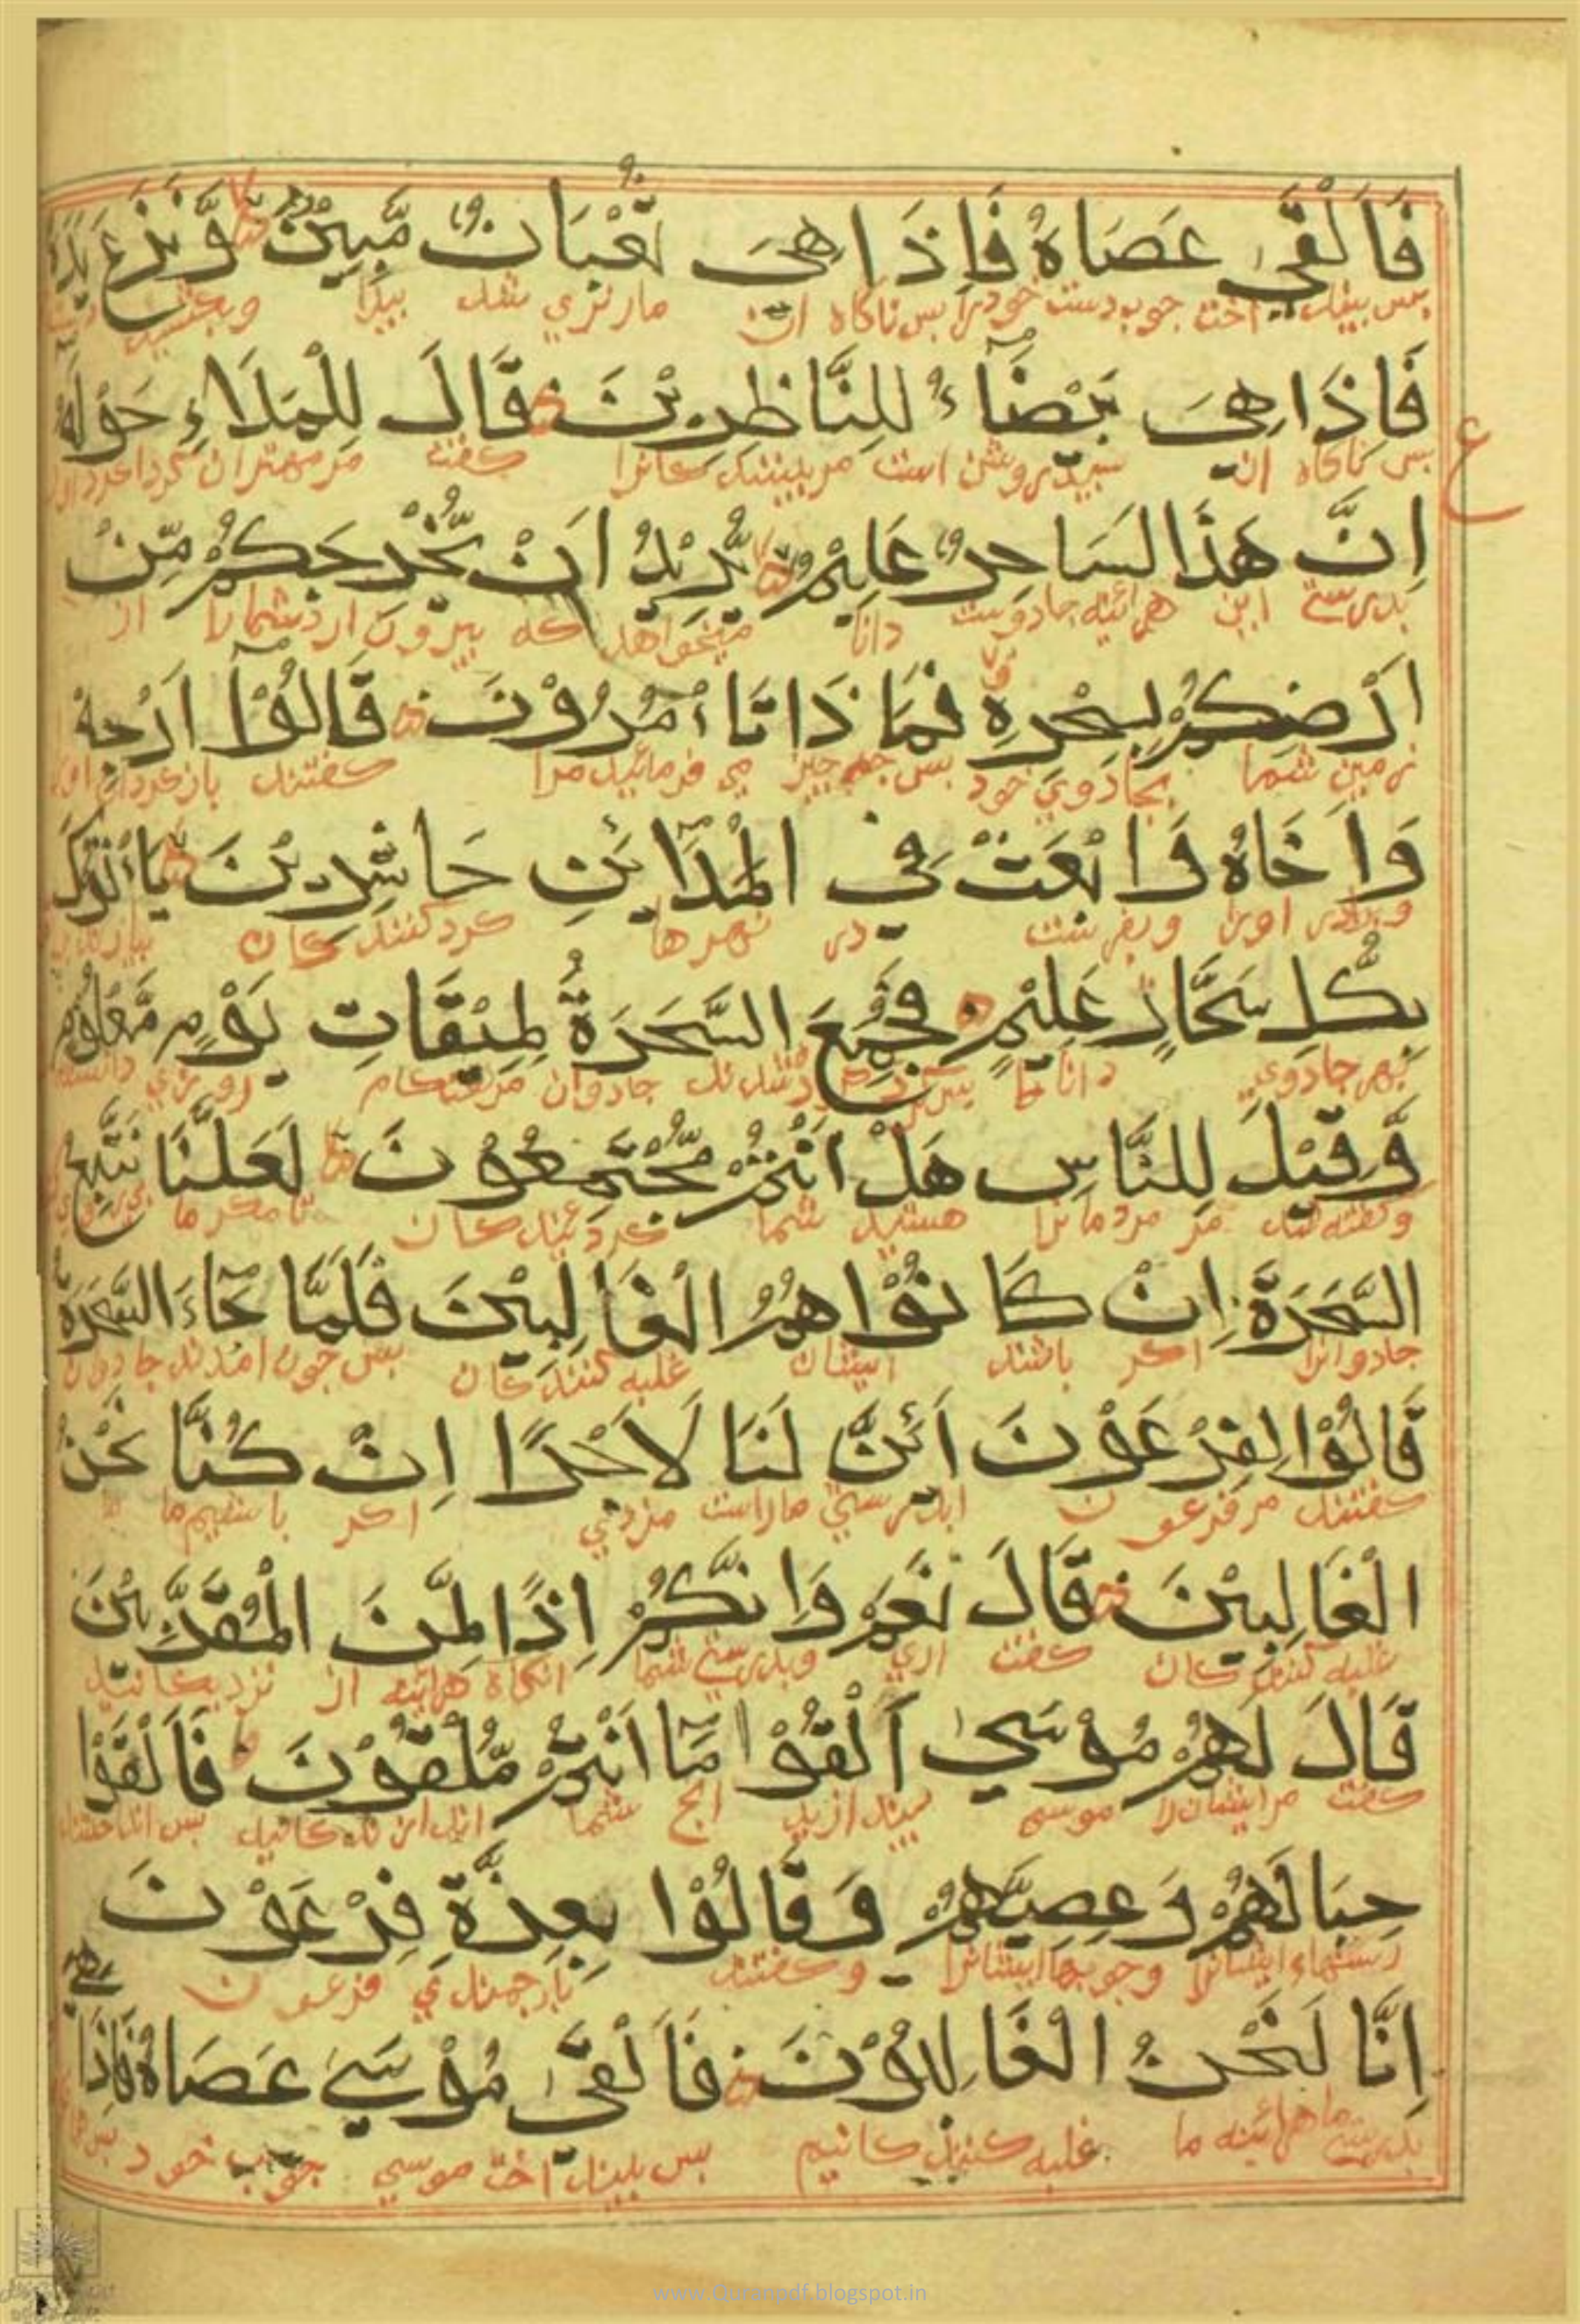 فَاَلْقٰى عَصَاهُ فَاِذَا هِيَ ثُعْبَانٌ مُّبِيْنٌ وَّنَزَعَ يَدَهُ
پس بینداخت چوب دست خود را پس ناکاه ان ماربزري شد پیدا
فَاِذَا هِيَ بَيْضَآءُ لِلنَّاظِرِيْنَ قَالَ لِلْمَلَاءِ حَوْلَهٗ
پس ناکاه ان سپید روشن است مر بینندکانرا کفت مر مهتران
اِنَّ هَذَا لَسَاحِرٌ عَلِيْمٌ يُّرِيْدُ اَنْ يُّخْرِجَكُمْ مِّنْ
بدرستي این هرائینه جادوست دانا میخواهد که بیرون ارد شمارا از
اَرْضِكُمْ بِسِحْرِهٖ فَمَا ذَا تَاْمُرُوْنَ قَالُوْٓا اَرْجِهْ
زمین شما بجادوي خود پس چه چیز مي فرمائید مرا کفتند
وَاَخَاهُ وَابْعَثْ فِي الْمَدَآئِنِ حَاشِرِيْنَ يَاْتُوْكَ
وبرادر اورا وبفرست در شهرها کردکنندکان
بِكُلِّ سَحَّارٍ عَلِيْمٍ فَجُمِعَ السَّحَرَةُ لِمِيْقَاتِ يَوْمٍ مَّعْلُوْمٍ
بهر جادوي دانا شدند جادوان روزي
وَّقِيْلَ لِلنَّاسِ هَلْ اَنْتُمْ مُّجْتَمِعُوْنَ لَعَلَّنَا نَتَّبِعُ
وکفته شد مر مردمانرا هستید شما کردشدکان تا مکر ما
السَّحَرَةَ اِنْ كَانُوْا هُمُ الْغَالِبِيْنَ فَلَمَّا جَآءَ السَّحَرَةُ
جادوانرا اکر باشند ایشان غلبه کنندکان پس چون امدند جادوان
قَالُوْا لِفِرْعَوْنَ اَئِنَّ لَنَا لَاَجْرًا اِنْ كُنَّا نَحْنُ
کفتند مر فرعون ایا بدرستي ماراست مزدي اکر باشیم ما
الْغَالِبِيْنَ قَالَ نَعَمْ وَاِنَّكُمْ اِذًا لَّمِنَ الْمُقَرَّبِيْنَ
غلبه کنندکان کفت اري وبدرستي شما انکاه هرائینه از نزدیکانید
قَالَ لَهُمْ مُوْسٰي اَلْقُوْا مَآ اَنْتُمْ مُّلْقُوْنَ فَاَلْقَوْا
کفت مرایشانرا موسي بیندازید انچ شما اندازندکانید پس انداختند
حِبَالَهُمْ وَعِصِيَّهُمْ وَقَالُوْا بِعِزَّةِ فِرْعَوْنَ
رسنهاء ایشانرا وچوبهاء ایشانرا وکفتند بارجمندي فرعون
اِنَّا لَنَحْنُ الْغَالِبُوْنَ فَاَلْقٰى مُوْسٰي عَصَاهُ فَاِذَا هِيَ
بدرستي ما هرائینه ما غلبه کنندکانیم پس بینداخت موسي چوب خود
ع
www.Quranpdf.blogspot.in